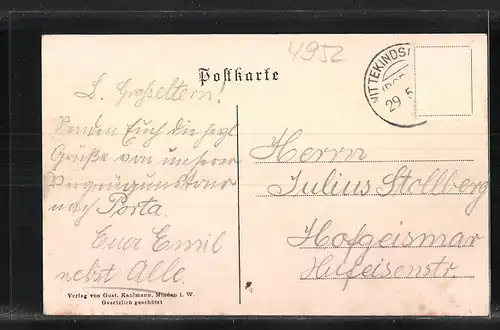 4952
Postkarte
WITTEKINDS
29. 5
L. Großeltern!
Senden Euch die herzl
Grüße von unserer
Vergnügungstour
nach Porta.
Euer Emil
nebst Alle.
Herrn
Julius Stollberg
Hofgeismar
Hufeisenstr.
Verlag von Gust. Kaufmann, Minden i. W.
Gesetzlich geschützt